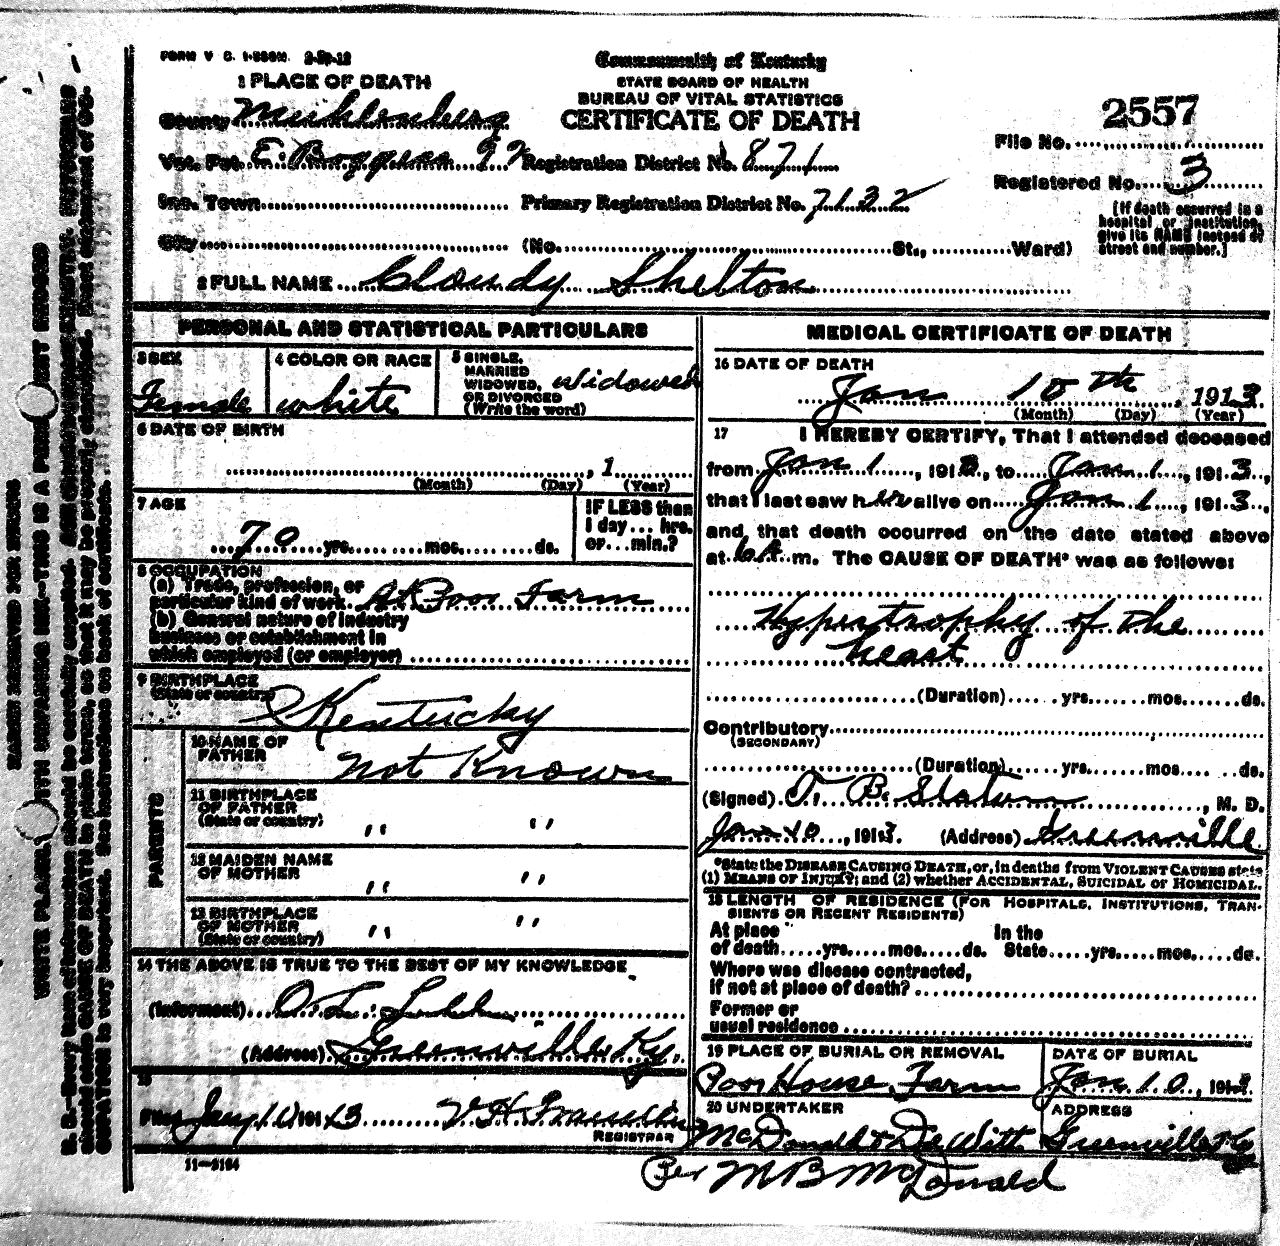 FORM V. S. 1-550M. 2-20-12
Commonwealth of Kentucky
STATE BOARD OF HEALTH
BUREAU OF VITAL STATISTICS
CERTIFICATE OF DEATH
1 PLACE OF DEATH
County Muhlenberg
Vot. Pct. E. Boggess 92 Registration District No. 871
Inc. Town Primary Registration District No. 7132
City (No. St., Ward)
File No. 2557
Registered No. 3
[If death occurred in a
hospital or institution,
give its NAME instead of
street and number.]
2 FULL NAME Cloudy Shelton
PERSONAL AND STATISTICAL PARTICULARS
3 SEX Female
4 COLOR OR RACE white
5 SINGLE, MARRIED WIDOWED, OR DIVORCED (Write the word) Widowed
6 DATE OF BIRTH
, 1
(Month) (Day) (Year)
7 AGE
70 yrs. mos. ds.
IF LESS than
1 day... hrs.
or...min.?
8 OCCUPATION
(a) Trade, profession, or
particular kind of work. At Poor Farm
(b) General nature of industry
business or establishment in
which employed (or employer)
9 BIRTHPLACE
(State or country) Kentucky
PARENTS
10 NAME OF
FATHER not Known
11 BIRTHPLACE
OF FATHER
(State or country) " "
12 MAIDEN NAME
OF MOTHER " "
13 BIRTHPLACE
OF MOTHER
(State or country) " "
14 THE ABOVE IS TRUE TO THE BEST OF MY KNOWLEDGE
(Informant) O. L.
(Address) Greenville Ky.
15
Filed Jany 11 1913 V H
REGISTRAR
11-3184
MEDICAL CERTIFICATE OF DEATH
16 DATE OF DEATH
Jan 10th, 1913
(Month) (Day) (Year)
17 I HEREBY CERTIFY, That I attended deceased
from Jan 1, 1913, to Jan 1, 1913,
that I last saw her alive on Jan 1, 1913,
and that death occurred on the date stated above
at 6 A m. The CAUSE OF DEATH* was as follows:
Hypertrophy of the
heart
(Duration) yrs. mos. ds.
Contributory
(SECONDARY)
(Duration) yrs. mos. ds.
(Signed) T. B. Slaton, M. D.
Jan 10, 1913. (Address) Greenville
*State the DISEASE CAUSING DEATH, or, in deaths from VIOLENT CAUSES state
(1) MEANS OF INJURY; and (2) whether ACCIDENTAL, SUICIDAL or HOMICIDAL.
18 LENGTH OF RESIDENCE (FOR HOSPITALS, INSTITUTIONS, TRAN-
SIENTS OR RECENT RESIDENTS)
At place In the
of death yrs. mos. ds. State yrs. mos. ds.
Where was disease contracted,
if not at place of death?
Former or
usual residence
19 PLACE OF BURIAL OR REMOVAL DATE OF BURIAL
Poor House Farm Jan 10, 1913
20 UNDERTAKER ADDRESS
McDonald & DeWitt Greenville Ky
Per M B McDonald
MARGIN RESERVED FOR BINDING
WRITE PLAINLY WITH UNFADING INK—THIS IS A PERMANENT RECORD
N. B.—Every item of information should be carefully supplied. AGE should be stated EXACTLY. PHYSICIANS
should state CAUSE OF DEATH in plain terms, so that it may be properly classified. Exact statement of OC-
CUPATION is very important. See instructions on back of certificate.